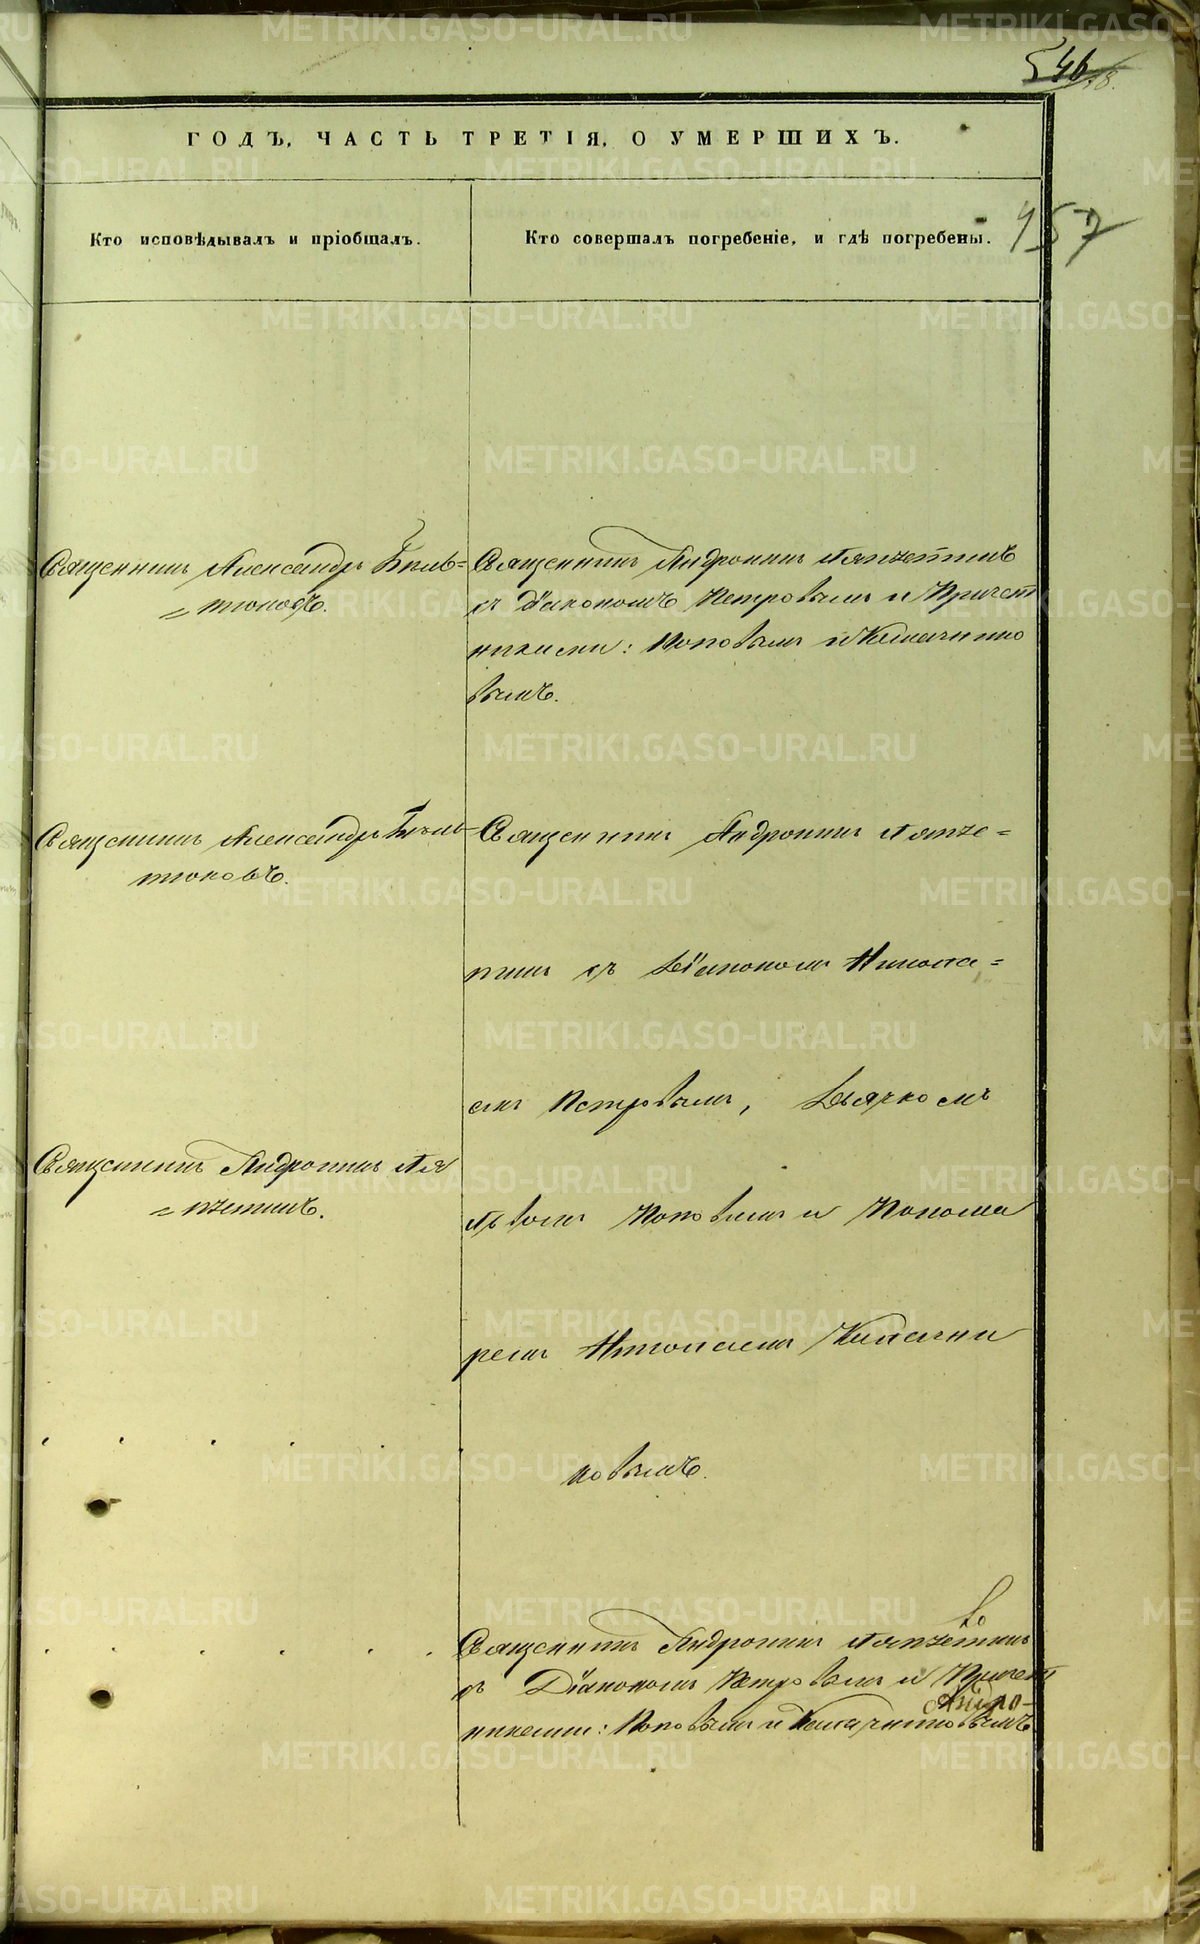 546
ГОДЪ, ЧАСТЬ ТРЕТІЯ, О УМЕРШИХЪ.
Кто исповѣдывалъ и пріобщалъ.
Кто совершалъ погребеніе, и гдѣ погребены.
957
Священникъ Александръ
=тюковъ.
Священникъ Андроникъ Ляпчетинъ
съ Діакономъ Петровымъ и Причет
никами: Поповымъ и
вымъ.
Священникъ Александръ
тюковъ.
Священникъ Андроникъ Ляпче=
тинъ съ Діакономъ Никола=
емъ Петровымъ, Дьячкомъ
Львомъ Поповымъ и Понома
ремъ
новымъ.
Священникъ Андроникъ Ля
=пчетинъ.
Священникъ Андроникъ Ляпчетинъ
съ Діакономъ Петровымъ и Причет
никами: Поповымъ и
METRIKI.GASO-URAL.RU